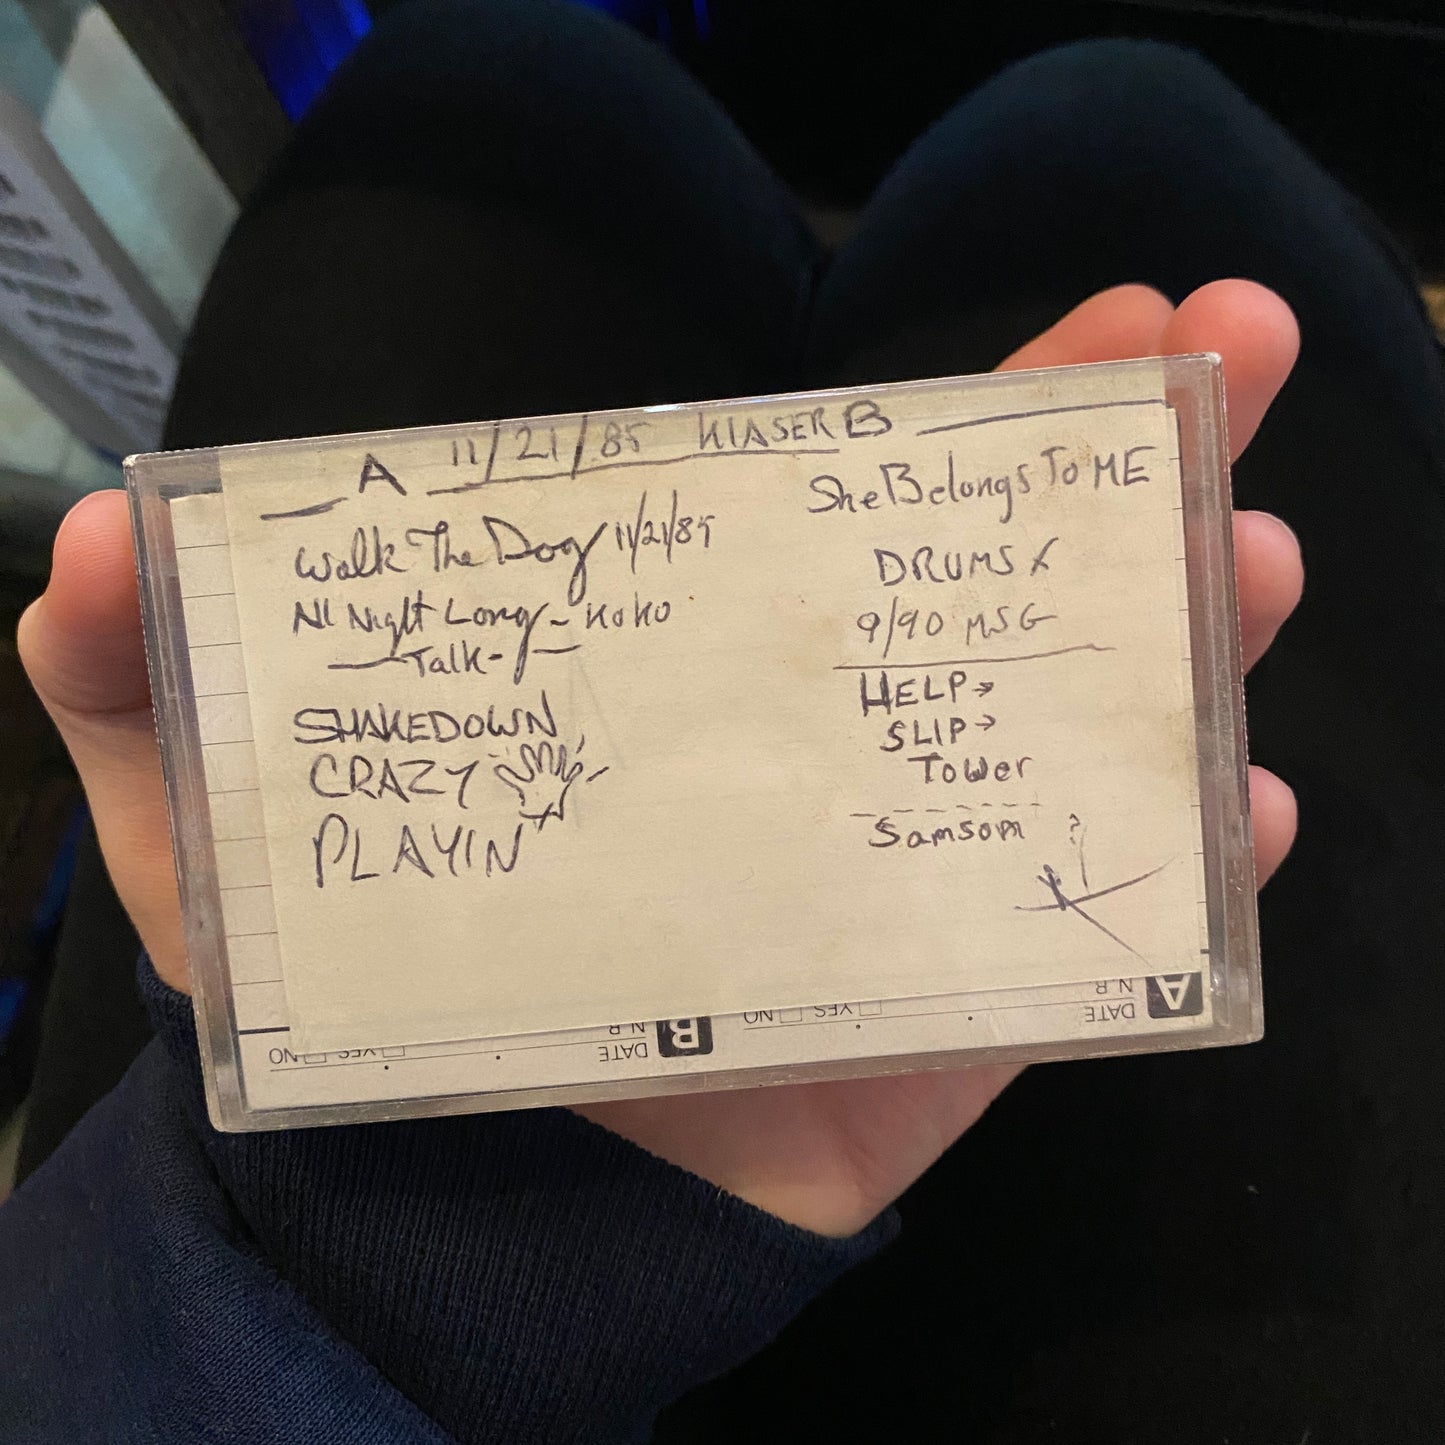 A 11/21/85 KIASER B
Walk The Dog 11/21/85
All Night Long - KoKo
-Talk-
SHAKEDOWN
CRAZY
PLAYIN
She Belongs To ME
DRUMS
9/90 MSG
HELP→
SLIP→
Tower
Samsom ?
A
N.R.
DATE
YES
NO
B
N.R.
DATE
YES
NO